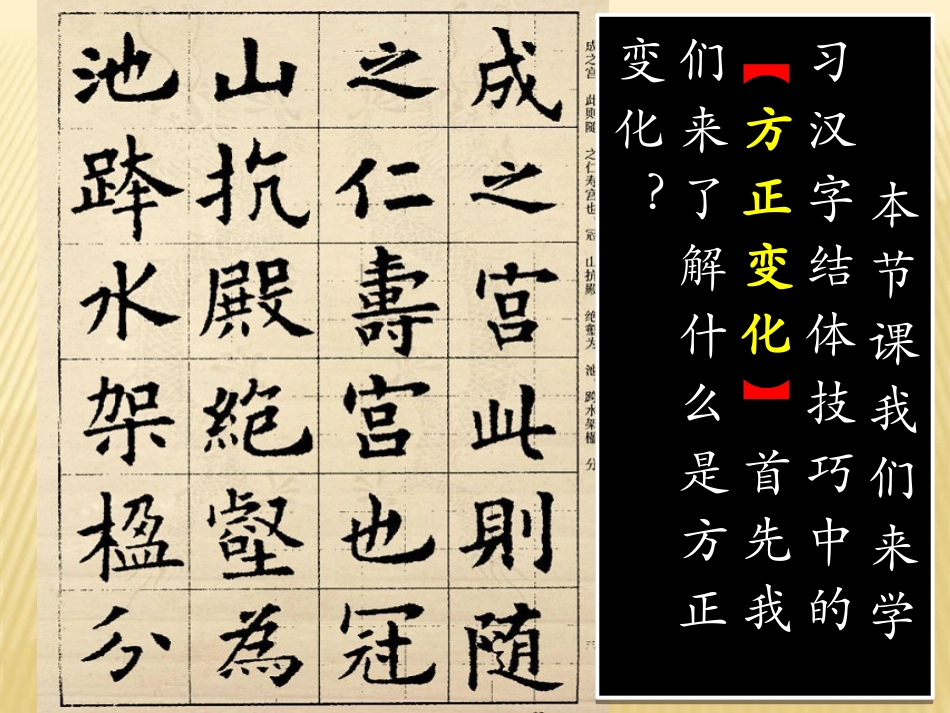 本节课我们来学
习汉字结体技巧中的
【方正变化】首先我
们来了解什么是方正
变化?
成之宫 此则随 之仁寿宫也。冠 山抗殿 绝壑为 池，跨水架楹 分
成之宮此則随
之仁壽宮也冠
山抗殿絶壑為
池跨水架楹分